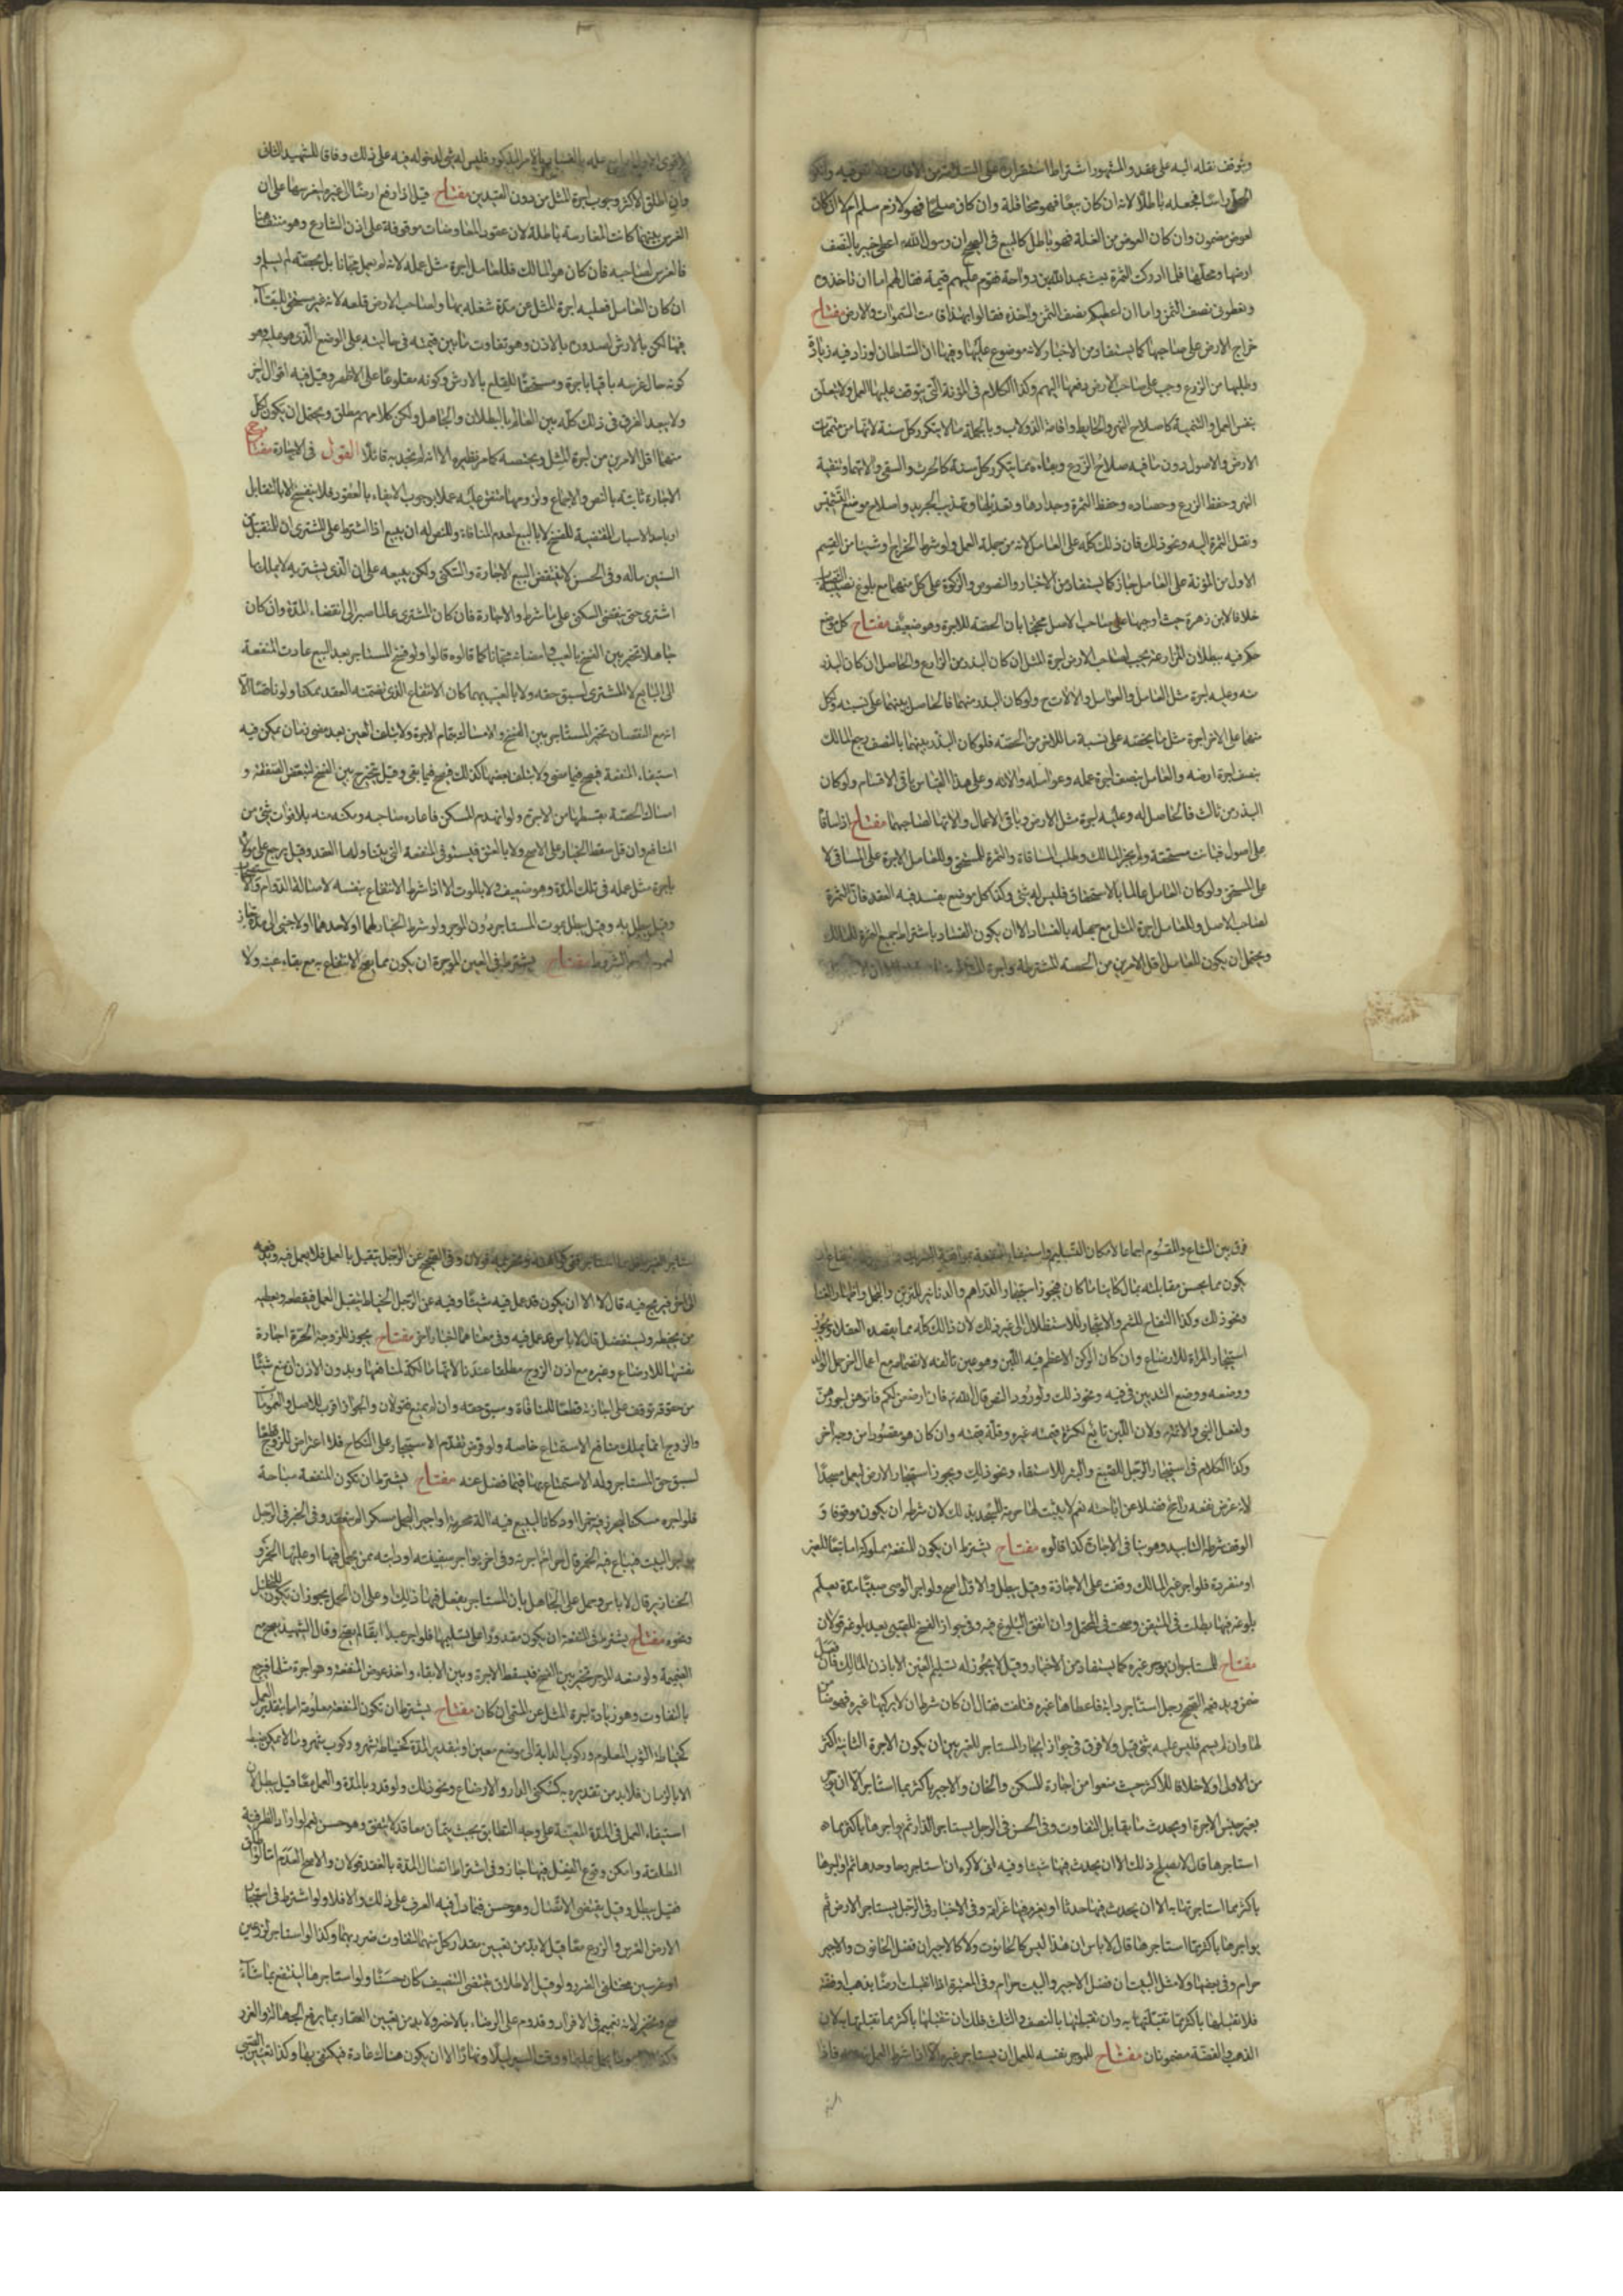 وتوقف نقله اليه على عقد والمشهور اشتراط استقراره على السلامة من الافات
فجعله باطلا لانه ان كان بيعا فهو محاقلة وان كان صلحا فهو لازم سلم ام لا ان كان
لعوض مضمون وان كان العوض من الغلة فهو باطل كالبيع في الصحيح ان رسول الله اعطى خيبر بالنصف
ارضها ونخلها فلما ادركت الثمرة بعث عبد الله بن رواحة فقوم عليهم قيمة فقال لهم اما ان تاخذوه
وتعطوني نصف الثمن واما ان اعطيكم نصف الثمن واخذه فقالوا بهذا قامت السموات والارض مفتاح
خراج الارض على صاحبها كما يستفاد من الاخبار لانه موضوع عليها وفيها ان السلطان لو زاد فيه زيادة
وطلبها من الزرع وجب على صاحب الارض دفعها اليهم وكذا الكلام في المؤنة التي يتوقف عليها العمل ولا يتعلق
بنفس العمل والتنمية كاصلاح النهر والحايط واقامة الدولاب وبالجملة ما لا يتكرر كل سنة لانها من متممات
الارض والاصول دون ما فيه صلاح الزرع وبقاءه مما يتكرر كل سنة كالحرث والسقي والاتهما وتنقية
النهر وحفظ الزرع وحصاده وحفظ الثمرة وجدادها وتعديلها وتهذيب الجريد واصلاح موضع التشميس
ونقل الثمرة اليه ونحو ذلك فان ذلك كله على العامل لانه من جملة العمل ولو شرط الخراج او شيئا من القسم
الاول من المؤنة على العامل جاز كما يستفاد من الاخبار والنصوص والزكوة على كل منهما مع بلوغ نصيبه النصاب
خلافا لابن زهرة حيث اوجبها على صاحب الاصل محتجا بان الحصة للاجرة وهو ضعيف مفتاح كل موضع
حكم فيه ببطلان المزارعة يجب لصاحب الارض اجرة المثل ان كان البذر من الزارع والحاصل ان كان البذر
منه وعليه اجرة مثل العامل والعوامل والالات ح ولو كان البذر منهما فالحاصل بينهما على نسبته ولكل
منهما على الاخر اجرة مثل ما يخصه على نسبة ما للاخر من الحصة فلو كان البذر بينهما بالنصف رجع المالك
بنصف اجرة ارضه والعامل بنصف اجرة عمله وعوامله والاته وعلى هذا القياس باقي الاقسام ولو كان
البذر من ثالث فالحاصل له وعليه اجرة مثل الارض وباقي الاعمال والاتها لصاحبهما مفتاح اذا ساقا
على اصول فبانت مستحقة ولم يجز المالك وطلب المساقاة والثمرة للمستحق وللعامل الاجرة على المساقي لا
على المستحق ولو كان العامل عالما بالاستحقاق فليس له شئ وكذا كل موضع يفسد فيه العقد فان الثمرة
لصاحب الاصل وللعامل اجرة المثل مع جهله بالفساد الا ان يكون الفساد باشتراط جميع الثمرة للمالك
ويحتمل ان يكون للعامل اقل الامرين من الحصة المشترطة واجرة المثل
فليس له شئ لدخوله فيه على ذلك وفاقا للشهيد الثاني
وان اطلق الاكثر وجوب اجرة المثل من دون القيدين مفتاح قيل اذا دفع ارضا الى غيره ليغرسها على ان
الغرس بينهما كانت المغارسة باطلة لان عقود المعاوضات موقوفة على اذن الشارع وهو منتف هنا
فالغرس لصاحبه فان كان هو المالك فللعامل اجرة مثل عمله لانه لم يعمل مجانا بل بحصة لم يسلم و
ان كان العامل فعليه اجرة المثل عن مدة شغله بها ولصاحب الارض قلعه لانه غير مستحق للبقاء
فيها لكن بالارش لصدوره بالاذن وهو تفاوت ما بين قيمته في حالتيه على الوضع الذي هو عليه وهو
كونه حال غرسه باقيا باجرة ومستحقا للقلع بالارش وكونه مقلوعا على الاظهر وقيل فيه اقوال اخر
ولا يبعد الفرق في ذلك كله بين العالم بالبطلان والجاهل ولكن كلامهم مطلق ويحتمل ان يكون لكل
منهما اقل الامرين من اجرة المثل وبحصته كما مر نظيره الا انه لم نجد به قائلا القول في الاجارة مفتاح
الاجارة ثابتة بالنص والاجماع ولزومها متفق عليه عملا بوجوب الايفاء بالعقود فلا ينفسخ الا بالتقايل
او باحد الاسباب المقتضية للفسخ لا بالبيع لعدم المنافاة وللنص له ان يبيع اذا اشترط على المشتري ان للمتقبل
السنين ماله وفي الحسن لا ينقض البيع الاجارة والسكنى ولكن يبيعه على ان الذي يشتريه لا يملك ما
اشترى حتى ينقضي السكنى على ما شرط والاجارة فان كان المشتري عالما صبر الى انقضاء المدة وان كان
جاهلا تخير بين الفسخ بالعيب وامضائه مجانا كما قالوه قالوا ولو فسخ المستاجر بعد البيع عادت المنفعة
الى البايع لا للمشتري لسبق حقه ولا بالعيب مهما كان الانتفاع الذي تضمنه العقد ممكنا ولو ناقصا الا
ان مع النقصان تخير المستاجر بين الفسخ والامساك بتمام الاجرة ولا بتلف العين بعد مضي زمان يمكن فيه
استيفاء المنفعة فيصح فيما مضى ولا بتلف بعضها كذلك فيصح فيما بقي وقيل يتخير بين الفسخ لتبعض الصفقة و
امساك الحصة بقسطها من الاجرة ولو انهدم المسكن فاعاده صاحبه ومكنه منه بلا فوات شئ من
المنافع وان قل سقط الخيار على الاصح ولا بالعتق فيستوفى المنفعة التي يتناولها العقد وقيل يرجع على مولاه
باجرة مثل عمله في تلك المدة وهو ضعيف ولا بالموت الا اذا شرط الانتفاع بنفسه لاصالة الدوام
وقيل يبطل به وقيل يبطل بموت المستاجر دون الموجر ولو شرط الخيار لهما او لاحدهما او لاجنبي الى مدة جاز
لعموم الشروط مفتاح يشترط في العين الموجرة ان يكون مما يصح الانتفاع به مع بقاء عينه ولا
فرق بين المشاع والمقسوم اجماعا لامكان التسليم واستيفاء المنفعة
يكون مما يحسن مقابلته بمال كائنا ما كان فيجوز استيجار الدراهم والدنانير للتزين والتجمل واظهار الغنا
ونحو ذلك وكذا التفاح للشم والاشجار للاستظلال الى غير ذلك لان ذلك كله مما يقصده العقلاء ويجوز
استيجار المراة للارضاع وان كان الركن الاعظم فيه اللبن وهو عين تالفة لانضمامه مع اعمال اخر حمل الولد
ووضعه ووضع الثدي في فيه ونحو ذلك ولورود النص قال الله تع فان ارضعن لكم فاتوهن اجورهن
ولفعل النبي والائمة ولان اللبن تابع لكثرة قيمته غيره وقلة قيمته وان كان هو مقصودا من وجه اخر
وكذا الكلام في استيجار الرجل للصبغ والبئر للاستقاء ونحو ذلك ويجوز استيجار الارض ليعمل مسجدا
لانه غرض نفعه راجح فضلا عن اباحته نعم لا يثبت لها حرمة المسجد بذلك لان شرطه ان يكون موقوفا و
الوقف شرطه التابيد وهو ينافي الاجارة كذا قالوه مفتاح يشترط ان يكون المنفعة مملوكة اما تبعا للعين
او منفردة فلو اجر غير المالك وقفت على الاجازة وقيل يبطل والاول اصح ولو اجر الوصي صبيا مدة يعلم
بلوغه فيها بطلت في المتيقن وصحت في المحتمل وان اتفق البلوغ فيه وفي جواز الفسخ للصبي بعد بلوغه قولان
مفتاح للمستاجر ان يوجر غيره كما يستفاد من الاخبار وقيل لا يجوز له تسليم العين الا باذن المالك فان فعل
ضمن وبدفعه الصحيح رجل استاجر دابة فاعطاها غيره فتلفت فقال ان كان شرط ان لا يركبها غيره فهو ضامن
لها وان لم يسم فليس عليه شئ قيل ولا فرق في جواز ايجار المستاجر للغير بين ان يكون الاجرة الثانية اكثر
من الاولى او لا خلافا للاكثر حيث منعوا من اجارة المسكن والخان والاجير باكثر مما استاجر الا ان يوجر
بغير جنس الاجرة او يحدث ما يقابل التفاوت وفي الحسن في الرجل يستاجر الدار ثم يواجرها باكثر مما
استاجرها قال لا يصلح ذلك الا ان يحدث فيها شيئا وفيه اني لاكره ان استاجر رحا وحدها ثم اواجرها
باكثر مما استاجرتها به الا ان يحدث فيها حدثا او يغرم فيها غرامة وفي الاخبار في الرجل يستاجر الارض ثم
يواجرها باكثر مما استاجرها قال لا باس ان هذا ليس كالحانوت ولا كالاجير ان فضل الحانوت والاجير
حرام وفي بعضها ولا مثل البيت ان فضل الاجير والبيت حرام وفي المعتبرة اذا تقبلت ارضا بذهب او فضة
فلا تقبلها باكثر مما تقبلتها به وان تقبلتها بالنصف والثلث فلك ان تقبلها باكثر مما تقبلتها به لان
الذهب والفضة مضمونان مفتاح للموجر نفسه للعمل ان يستاجر غيره الا اذا شرط العمل
قولان وفي الصحيح عن الرجل يتقبل بالعمل فلا يعمل فيه ويدفعه
الى اخر فيربح فيه قال لا الا ان يكون قد عمل فيه شيئا وفيه عن الرجل الخياط يتقبل العمل فيقطعه ويعطيه
من يخيطه ويستفضل قال لا باس قد عمل فيه وفي معناهما اخبار اخر مفتاح يجوز للزوجة الحرة اجارة
نفسها للارضاع وغيره مع اذن الزوج مطلقا عندنا لانها مالكة لمنافعها وبدون الاذن ان منع شيئا
من حقوقه توقف على اجازته قطعا للمنافاة وسبق حقه وان لم يمنع فقولان والجواز اقرب للاصل والعمومات
والزوج انما يملك منافع الاستمتاع خاصة ولو فرض تقدم الاستيجار على النكاح فلا اعتراض للزوج قطعا
لسبق حق المستاجر وله الاستمتاع بها فيما فضل عنه مفتاح يشترط ان تكون المنفعة مباحة
فلو اجره مسكنا ليحرز فيه خمرا او دكانا ليبيع فيه الة محرمة او اجيرا ليحمل مسكرا لم ينعقد وفي الخبر في الرجل
يواجر البيت فيباع فيه الخمر قال حرام اجرته وفي اخر يواجر سفينته او دابته ممن يحمل فيها او عليها الخمر و
الخنازير قال لا باس وحمل على الجاهل بان المستاجر يفعل فيها ذلك او على ان الحمل يجوز ان يكون للتخليل
ونحوه مفتاح يشترط في المنفعة ان يكون مقدورا على تسليمها فلو اجر عبدا ابقا لم يصح وقال الشهيد يصح مع
الضميمة ولو منعه الموجر تخير بين الفسخ فيسقط الاجرة وبين الابقاء واخذ عوض المنفعة وهو اجرة مثلها فيرجع
بالتفاوت وهو زيادة اجرة المثل عن المسمى ان كان مفتاح يشترط ان تكون المنفعة معلومة اما بتقدير العمل
كخياطة الثوب المعلوم وركوب الدابة الى موضع معين او بتقدير المدة كخياطة شهر وركوب شهر وما لا يمكن ضبطه
الا بالزمان فلا بد من تقديره به كسكنى الدار والارضاع ونحو ذلك ولو قدر بالمدة والعمل معا قيل يبطل لان
استيفاء العمل في المدة المعينة على وجه التطابق بحيث يتمان معا قد لا يتفق وهو حسن نعم لو اراد الظرفية
المطلقة وامكن وقوع الفعل فيها جاز وفي اشتراط اتصال المدة بالعقد قولان والاصح العدم اما لو اطلق
فقيل يبطل وقيل يقتضي الاتصال وهو حسن فيما دل فيه العرف على ذلك والا فلا ولو اشترط في استيجار
الارض الغرس والزرع معا قيل لا بد من تعيين مقدار كل منهما لتفاوت ضرريهما وكذا لو استاجر لزرعين
او غرسين مختلفي الضرر ولو قيل الاطلاق يقتضي التنصيف كان حسنا ولو استاجرها لينتفع بما شاء
صح وتخير لانه تعميم في الافراد وقدوم على الرضاء بالاضر ولا بد من تعيين العقار بما يرفع الجهالة والغرر
وقت السير ليلا ونهارا الا ان يكون هناك عادة فيكتفى بها وكذا تعيين